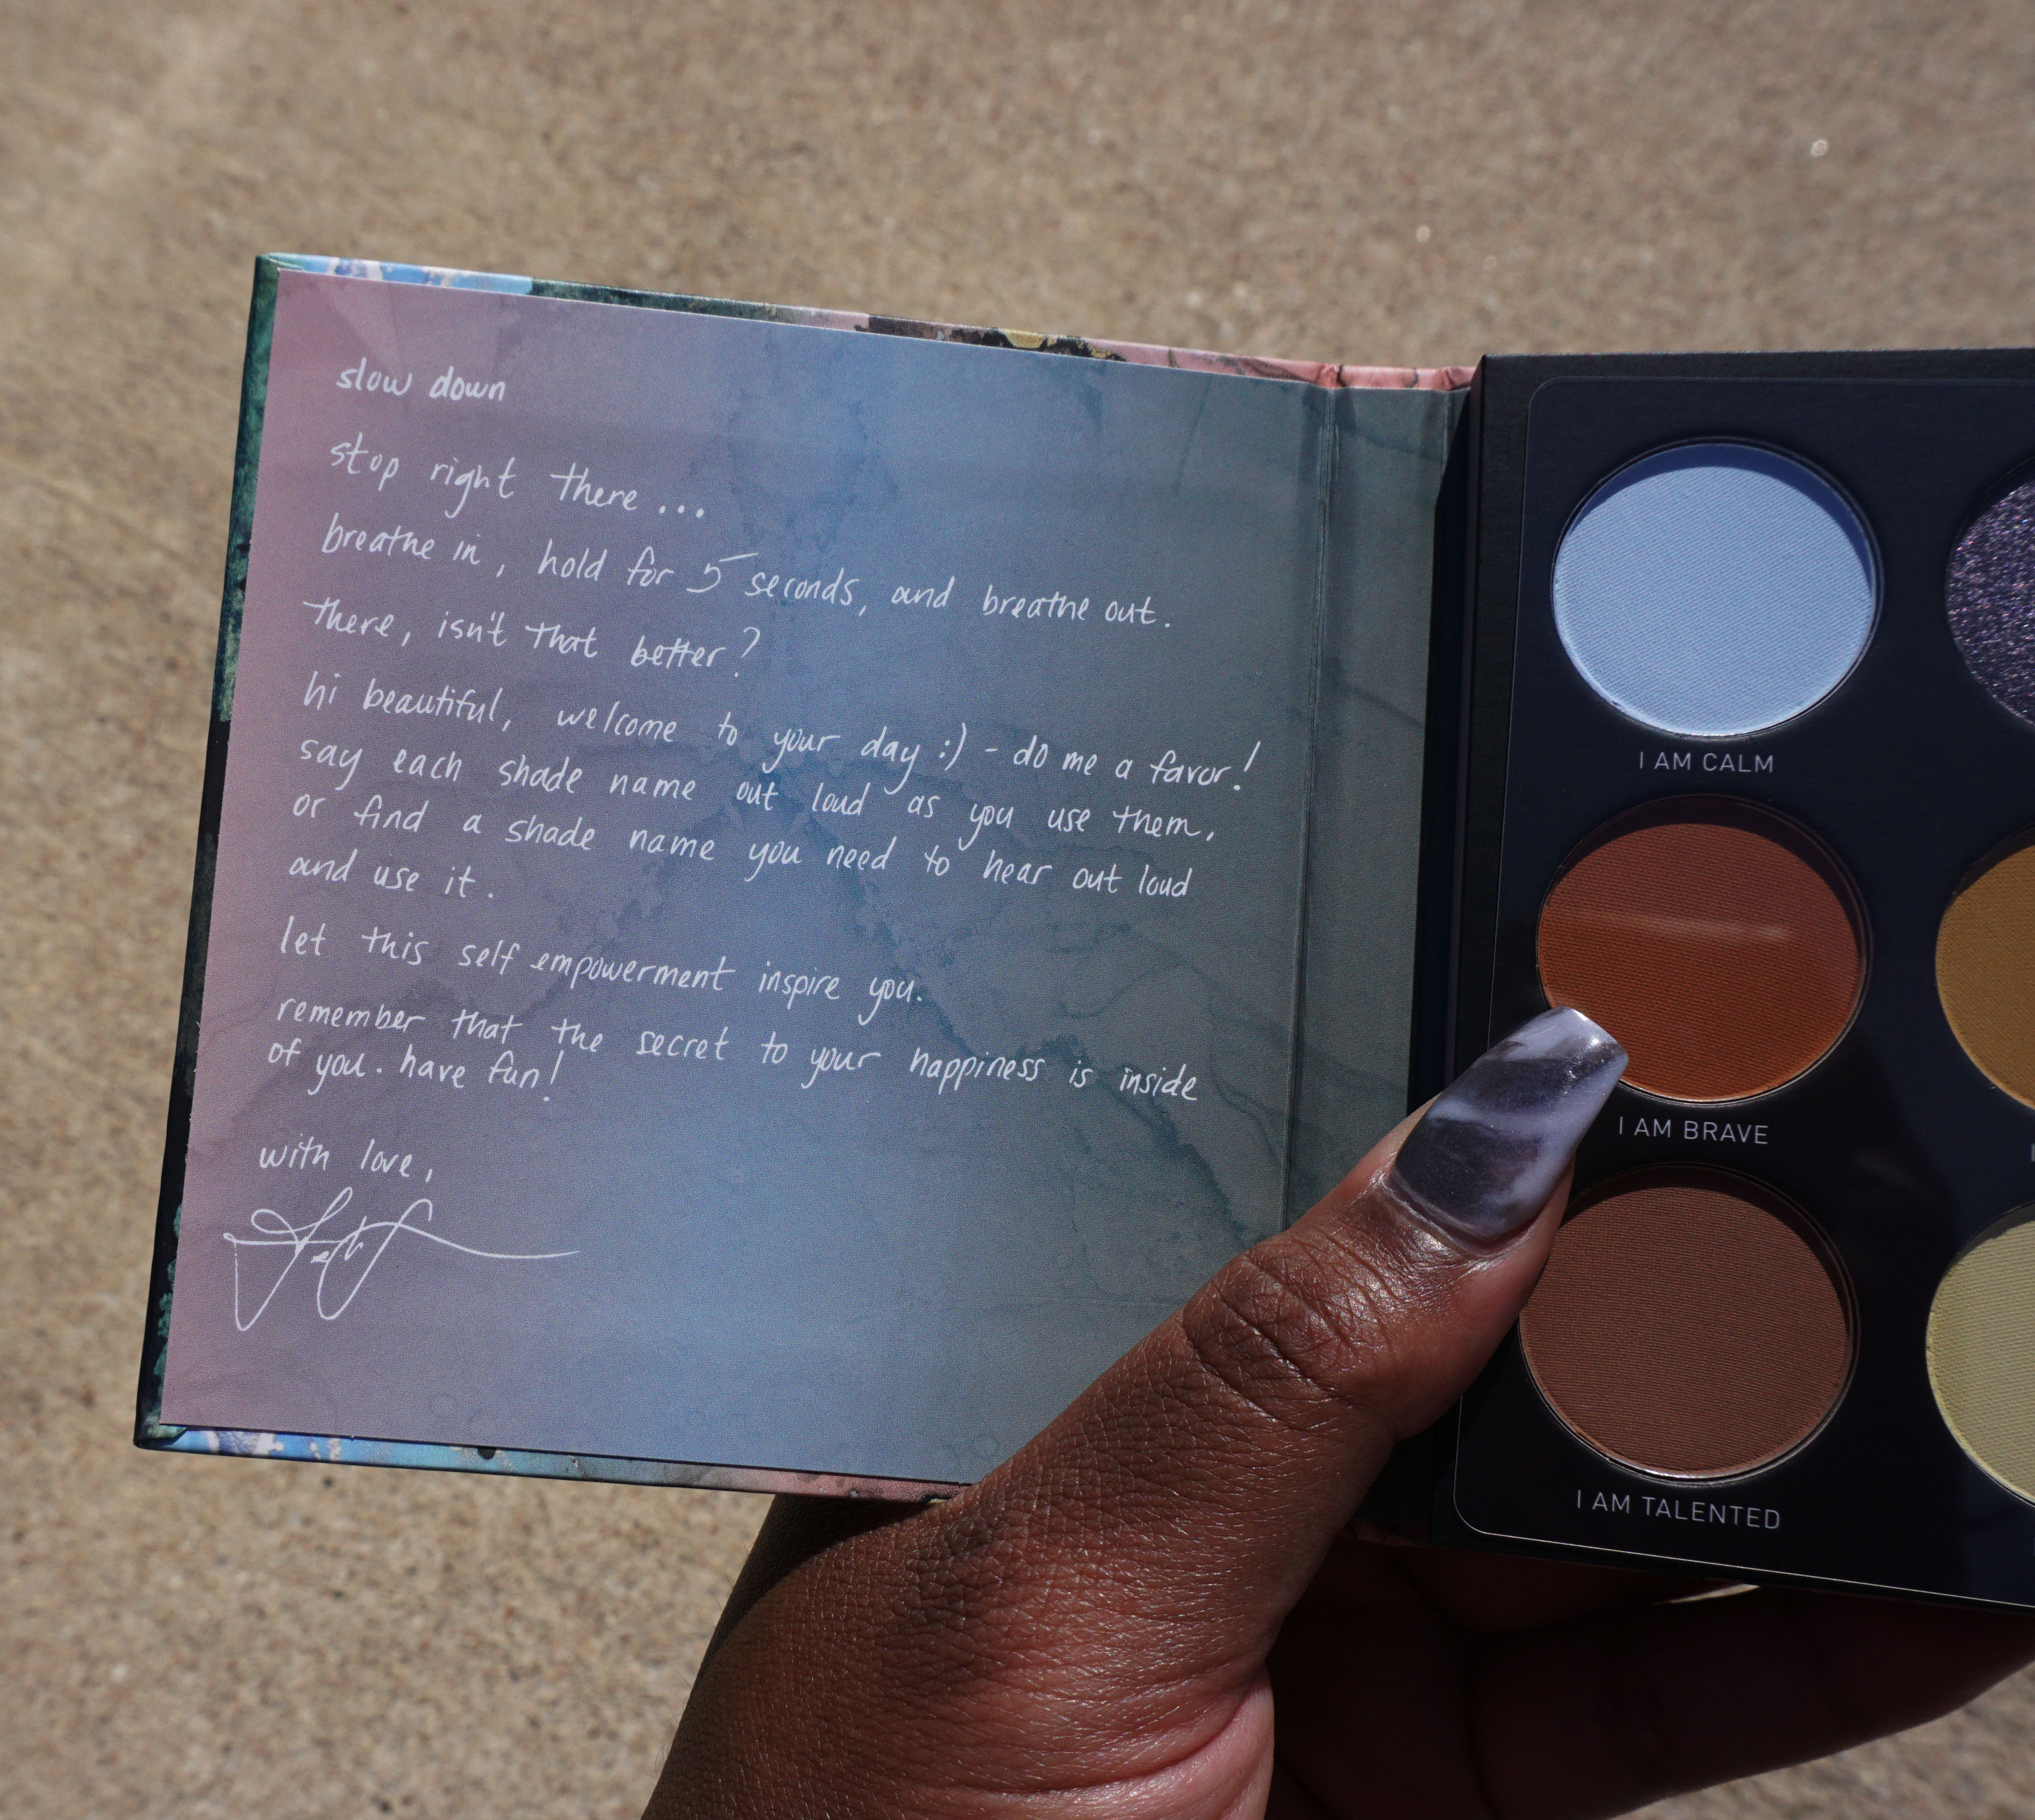 slow down
stop right there...
breathe in, hold for 5 seconds, and breathe out.
there, isn't that better?
hi beautiful, welcome to your day :) - do me a favor!
say each shade name out loud as you use them,
or find a shade name you need to hear out loud
and use it.
let this self empowerment inspire you.
remember that the secret to your happiness is inside
of you. have fun!
with love,
I AM CALM
I AM BRAVE
I AM TALENTED